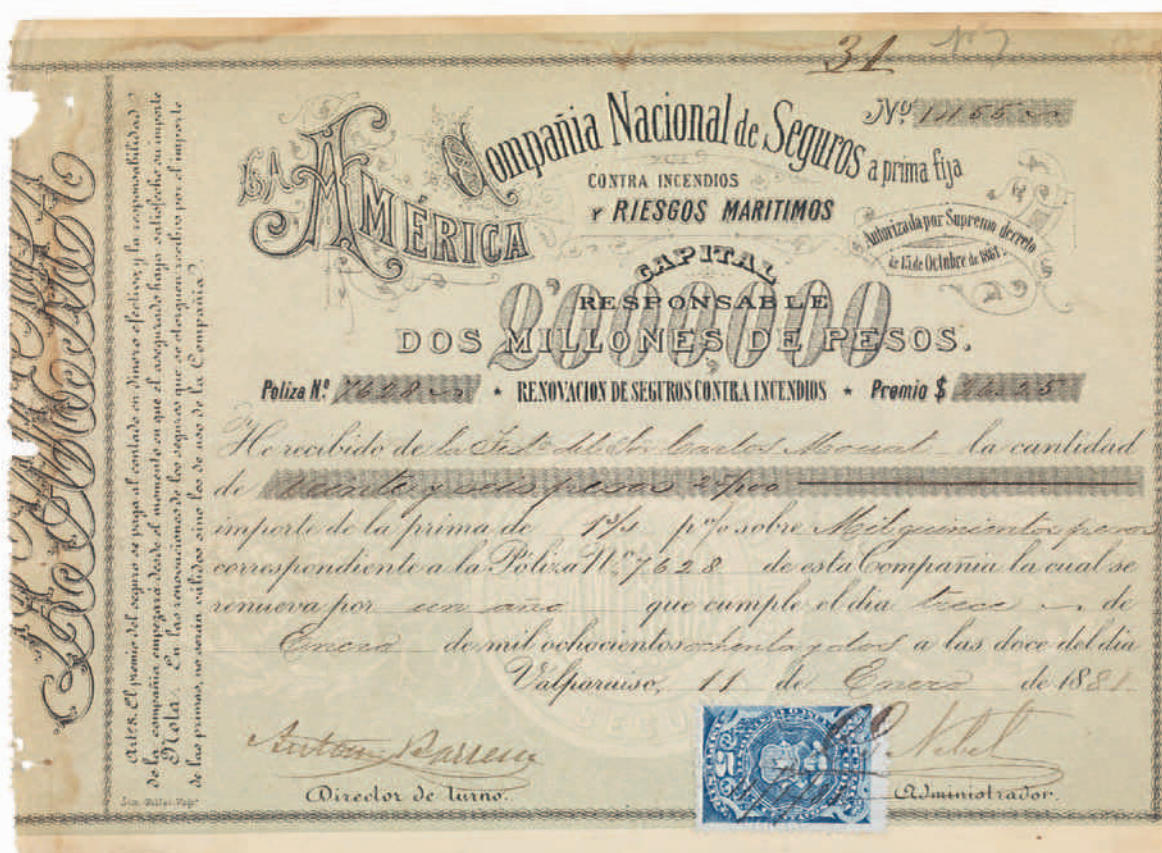 31
LA AMÉRICA
Compañia Nacional de Seguros a prima fija
Nº 11155
CONTRA INCENDIOS
Y RIESGOS MARITIMOS
Autorizada por Supremo decreto
de 15 de Octubre de 1861.
CAPITAL
RESPONSABLE
2'000,000
DOS MILLONES DE PESOS.
Poliza N.º 7628 * RENOVACION DE SEGUROS CONTRA INCENDIOS * Premio $ 26.25
He recibido de la del Sor Carlos Mouat la cantidad
de veinte y seis pesos 25/100
importe de la prima de 1 3/4 p% sobre Mil quinientos pesos
correspondiente a la Póliza N.º 7628 de esta Compañia la cual se
renueva por un año que cumple el dia trece de
Enero de mil ochocientos ochenta y dos a las doce del dia
Valparaiso, 11 de Enero de 1881
SEGU
Director de turno.
Nebel
Administrador.
Art. 8. El premio del seguro se paga al contado en dinero efectivo, y la responsabilidad
de la compañia empezará desde el momento en que el asegurado haya satisfecho su importe
Nota. En las renovaciones de los seguros que se otorguen recibos por el importe
de las primas, no serán válidos sino los de uso de la Compañia.